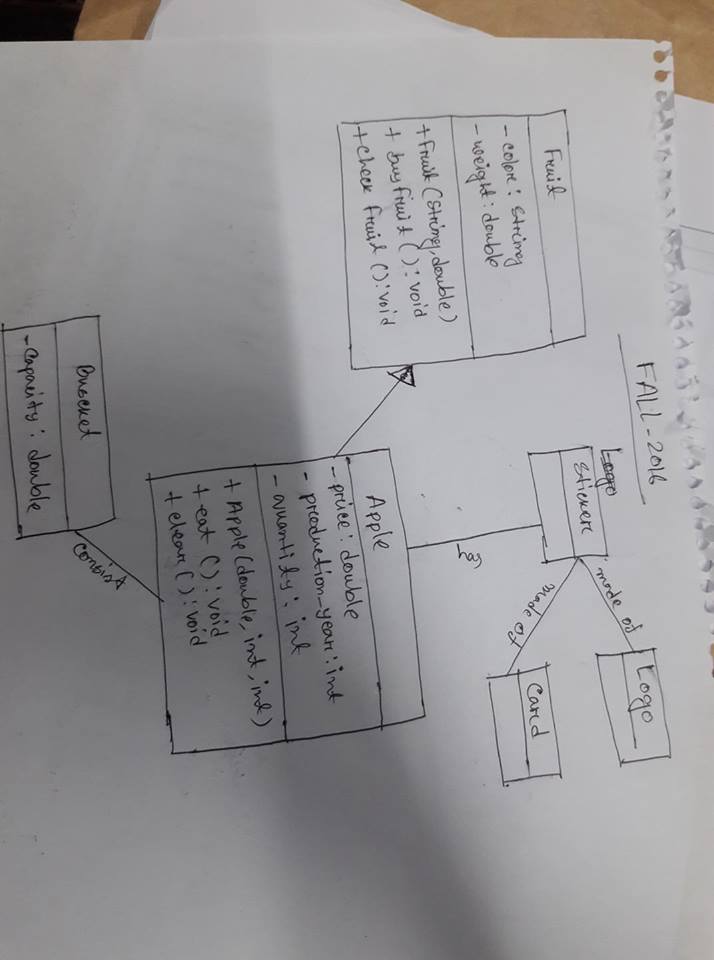 FALL-2016
Fruit
- color: String
- weight: double
+ Fruit (String, double)
+ buyfruit (): void
+ check fruit (): void
Logo
Sticker
made of
Logo
made of
Card
Apple
- price: double
- production-year: int
- quantity: int
+ Apple (double, int, int)
+ eat (): void
+ clear (): void
consist
Buscket
- Capacity: double